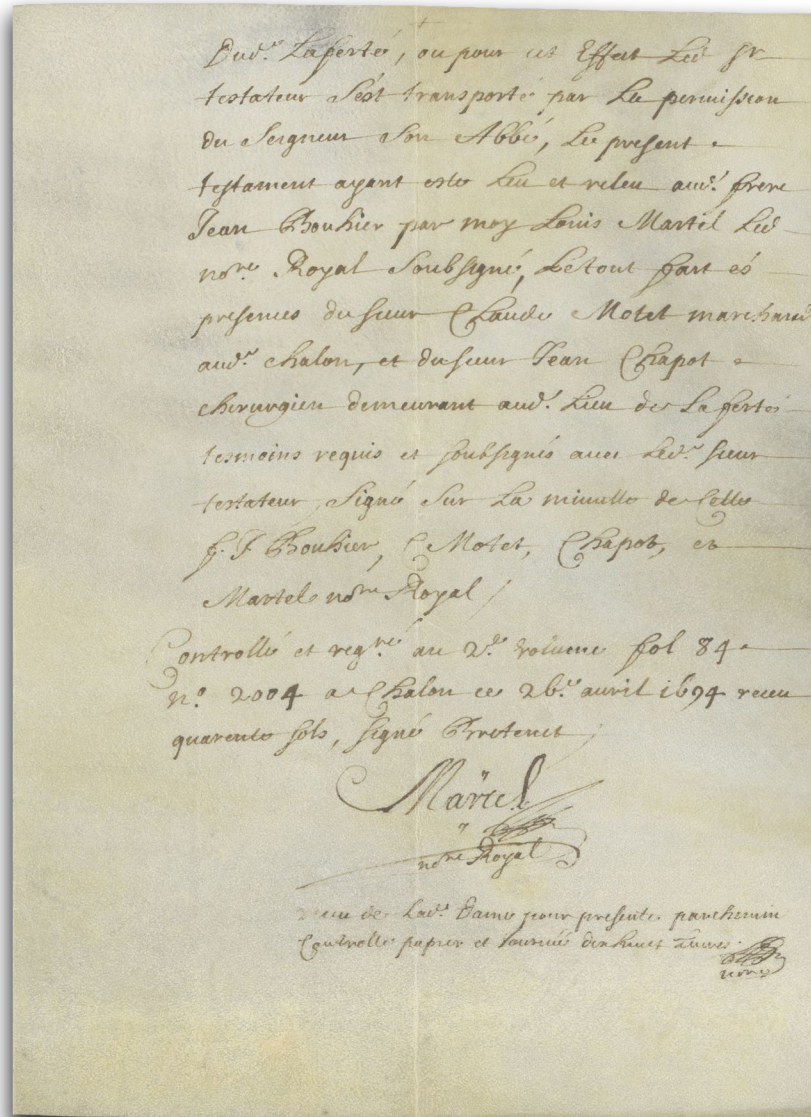 Dud.t Laferté, ou pour cet Effect Led Sr
testateur Sést transporté par La permission
du Seigneur Son Abbé, Le present
testament ayant esté Leu et releu aud.t frere
Jean Bouhier par moy Louis Martel Led
no.re Royal Soubsigné, Le tout fait és
presences du sieur Claude Motet marchand
aud.t chalon, et du sieur Jean Chapot
chirurgien demeurant aud.t Lieu de Laferté
tesmoins requis et soubsignés avec Led.t sieur
testateur, Signé Sur La minutte de Celle
f. J Bouhier, C Motet, Chapot, et
Martel no.re Royal /
Controllé et reg.ré au 2.e volume fol 84
n.o 2004 a Chalon ce 26.e avril 1694 receu
quarente sols, signé
Martel
no.re Royal
receu de Lad.te Dame pour presente parchemin
Controlle papier et
no.re